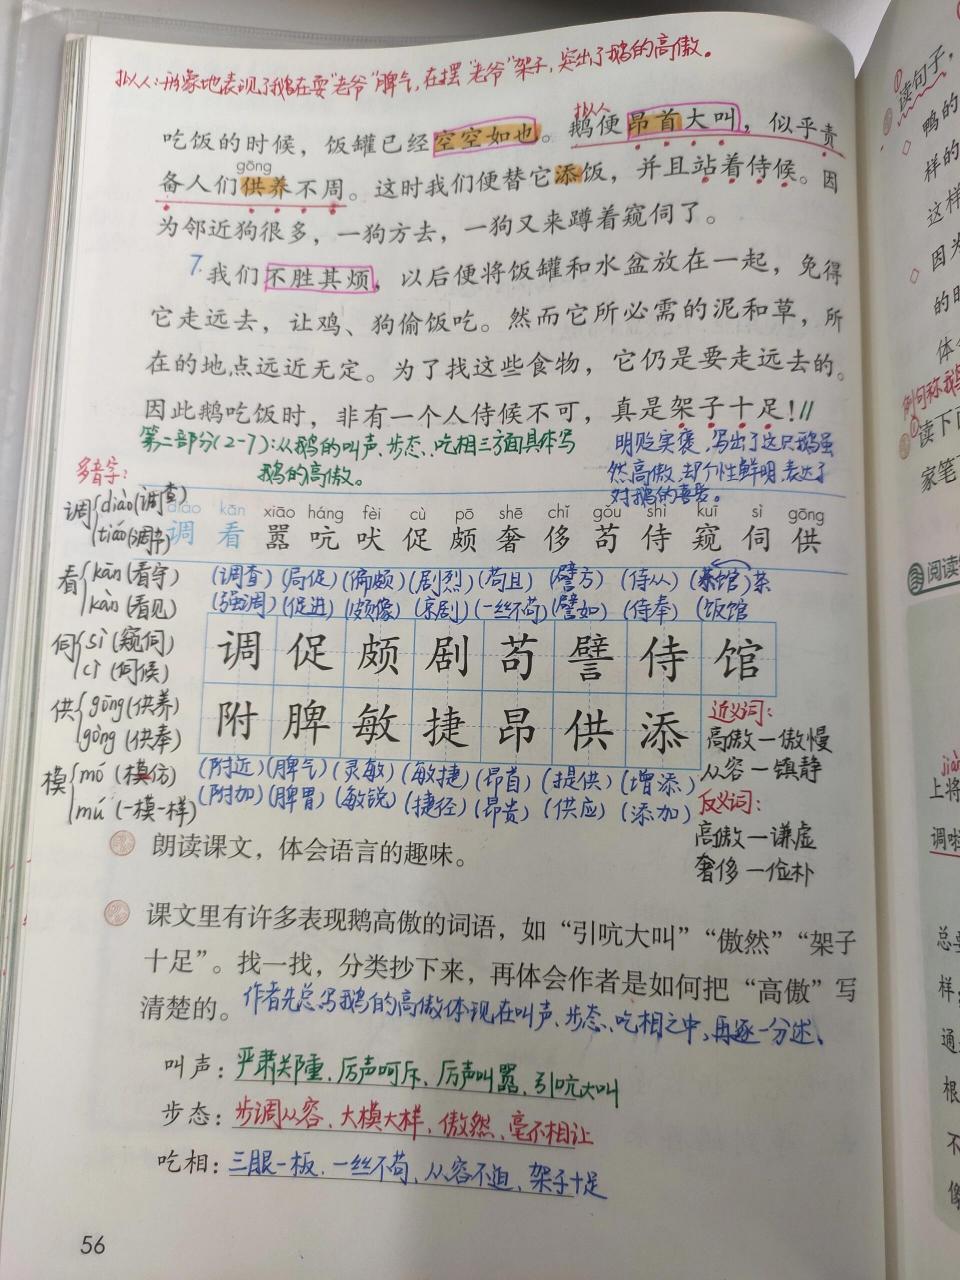 拟人:形象地表现了鹅在耍"老爷"脾气,在摆"老爷"架子,突出了鹅的高傲。
拟人
吃饭的时候，饭罐已经空空如也。鹅便昂首大叫，似乎责
gōng
备人们供养不周。这时我们便替它添饭，并且站着侍候。因
为邻近狗很多，一狗方去，一狗又来蹲着窥伺了。
7.我们不胜其烦，以后便将饭罐和水盆放在一起，免得
它走远去，让鸡、狗偷饭吃。然而它所必需的泥和草，所
在的地点远近无定。为了找这些食物，它仍是要走远去的。
因此鹅吃饭时，非有一个人侍候不可，真是架子十足！//
第二部分(2-7):从鹅的叫声、步态、吃相三方面具体写
鹅的高傲。
明贬实褒,写出了这只鹅虽
然高傲,却个性鲜明,表达了
对鹅的喜爱。
多音字:
调 diào(调查)
tiáo(调节)
看 kān(看守)
kàn(看见)
伺 sì(窥伺)
cì(伺候)
供 gōng(供养)
gòng(供奉)
模 mó(模仿)
mú(一模一样)
diào kān xiāo háng fèi cù pō shē chǐ gǒu shì kuī sì gōng
调 看 嚣 吭 吠 促 颇 奢 侈 苟 侍 窥 伺 供
(调查)(局促)(偏颇)(剧烈)(苟且)(譬方)(侍从)(茶馆)菜
(强调)(促进)(颇像)(京剧)(一丝不苟)(譬如)(侍奉)(饭馆)
调 促 颇 剧 苟 譬 侍 馆
附 脾 敏 捷 昂 供 添
(附近)(脾气)(灵敏)(敏捷)(昂首)(提供)(增添)
(附加)(脾胃)(敏锐)(捷径)(昂贵)(供应)(添加)
近义词:
高傲—傲慢
从容—镇静
反义词:
高傲—谦虚
奢侈—俭朴
朗读课文，体会语言的趣味。
课文里有许多表现鹅高傲的词语，如“引吭大叫”“傲然”“架子
十足”。找一找，分类抄下来，再体会作者是如何把“高傲”写
清楚的。
作者先总写鹅的高傲体现在叫声、步态、吃相之中,再逐一分述。
叫声：严肃郑重、厉声呵斥、厉声叫嚣、引吭大叫
步态：步调从容、大模大样、傲然、毫不相让
吃相：三眼一板、一丝不苟、从容不迫、架子十足
56
①
读句子，
鸭的
样的
这样
因为
的时
体会
例句称我
读下面
家笔下
阅读
上将
调啦
总要
样；
通
根
不
像